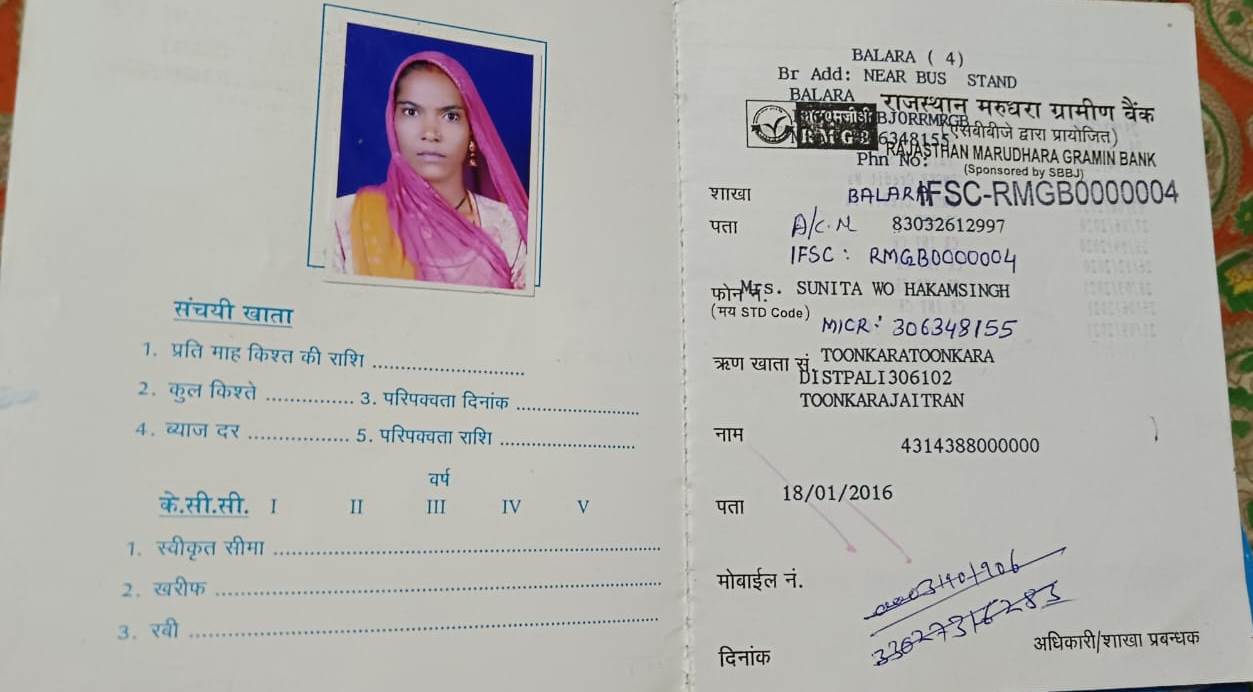 संचयी खाता
1. प्रति माह किश्त की राशि
2. कुल किश्ते 3. परिपक्वता दिनांक
4. ब्याज दर 5. परिपक्वता राशि
वर्ष
के.सी.सी. I II III IV V
1. स्वीकृत सीमा
2. खरीफ
3. रबी
BALARA ( 4)
Br Add: NEAR BUS STAND
BALARA
राजस्थान मरुधरा ग्रामीण बैंक
BJORRMRGB
(एसबीबीजे द्वारा प्रायोजित)
RMGB 6348155
RAJASTHAN MARUDHARA GRAMIN BANK
Phn No:
(Sponsored by SBBJ)
शाखा BALARA IFSC-RMGB0000004
पता A/C.N 83032612997
IFSC: RMGB0000004
फोन नं. Mrs. SUNITA WO HAKAMSINGH
(मय STD Code) MICR: 306348155
ऋण खाता सं. TOONKARATOONKARA
DISTPALI306102
TOONKARAJAITRAN
नाम
4314388000000
18/01/2016
पता
मोबाईल नं.
दिनांक
अधिकारी/शाखा प्रबन्धक